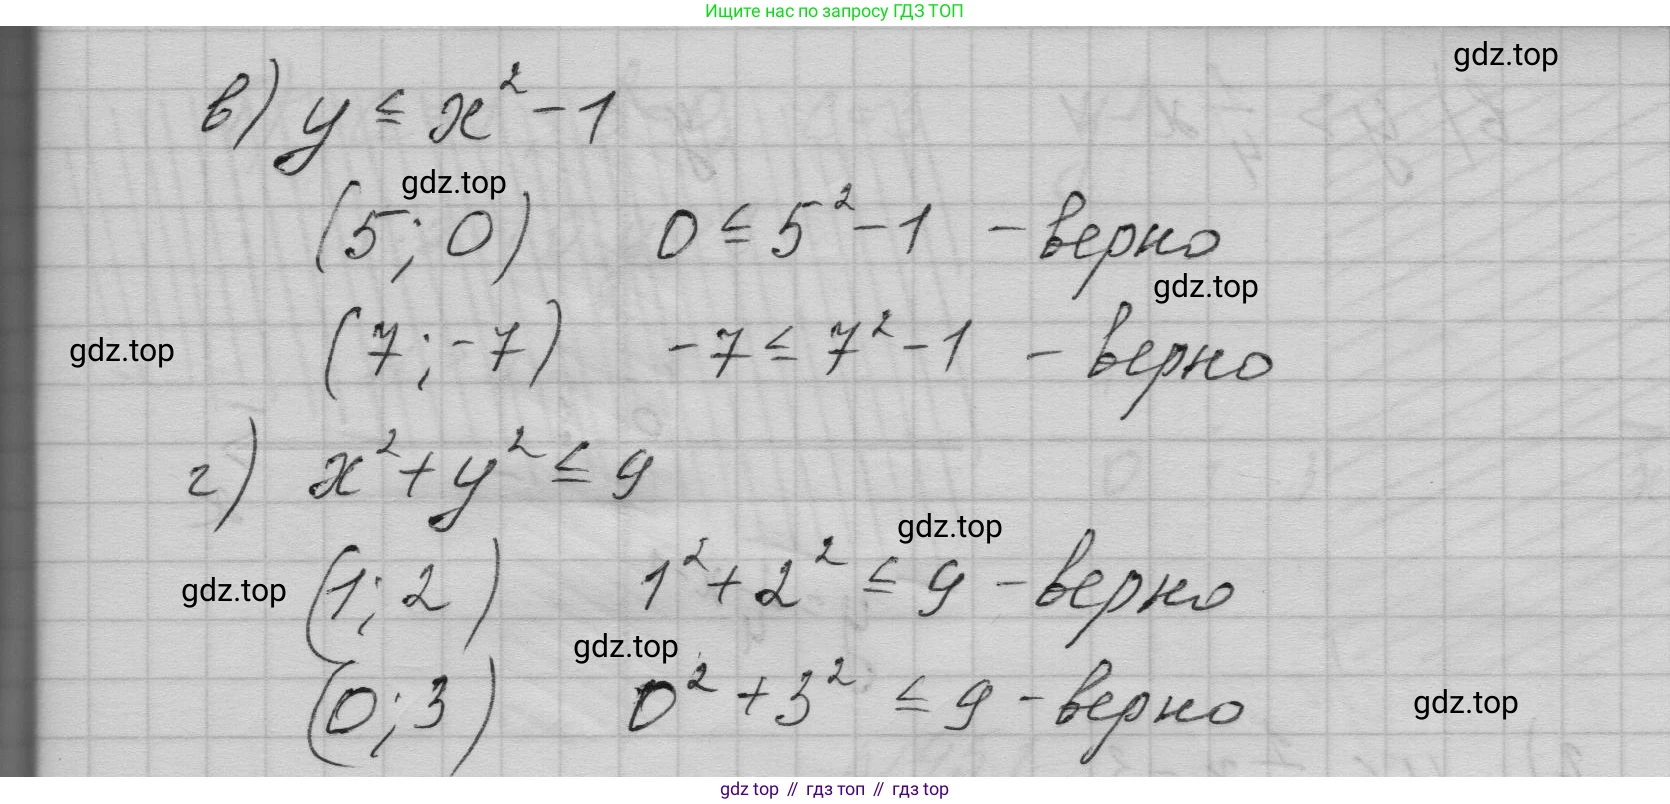 Ищите нас по запросу ГДЗ ТОП
gdz.top
в) y ≤ x² - 1
gdz.top
(5; 0) 0 ≤ 5² - 1 - верно
gdz.top
(7; -7) -7 ≤ 7² - 1 - верно
gdz.top
г) x² + y² ≤ 9
gdz.top
(1; 2) 1² + 2² ≤ 9 - верно
gdz.top
gdz.top
(0; 3) 0² + 3² ≤ 9 - верно
gdz.top
gdz top // гдз топ // гдз top